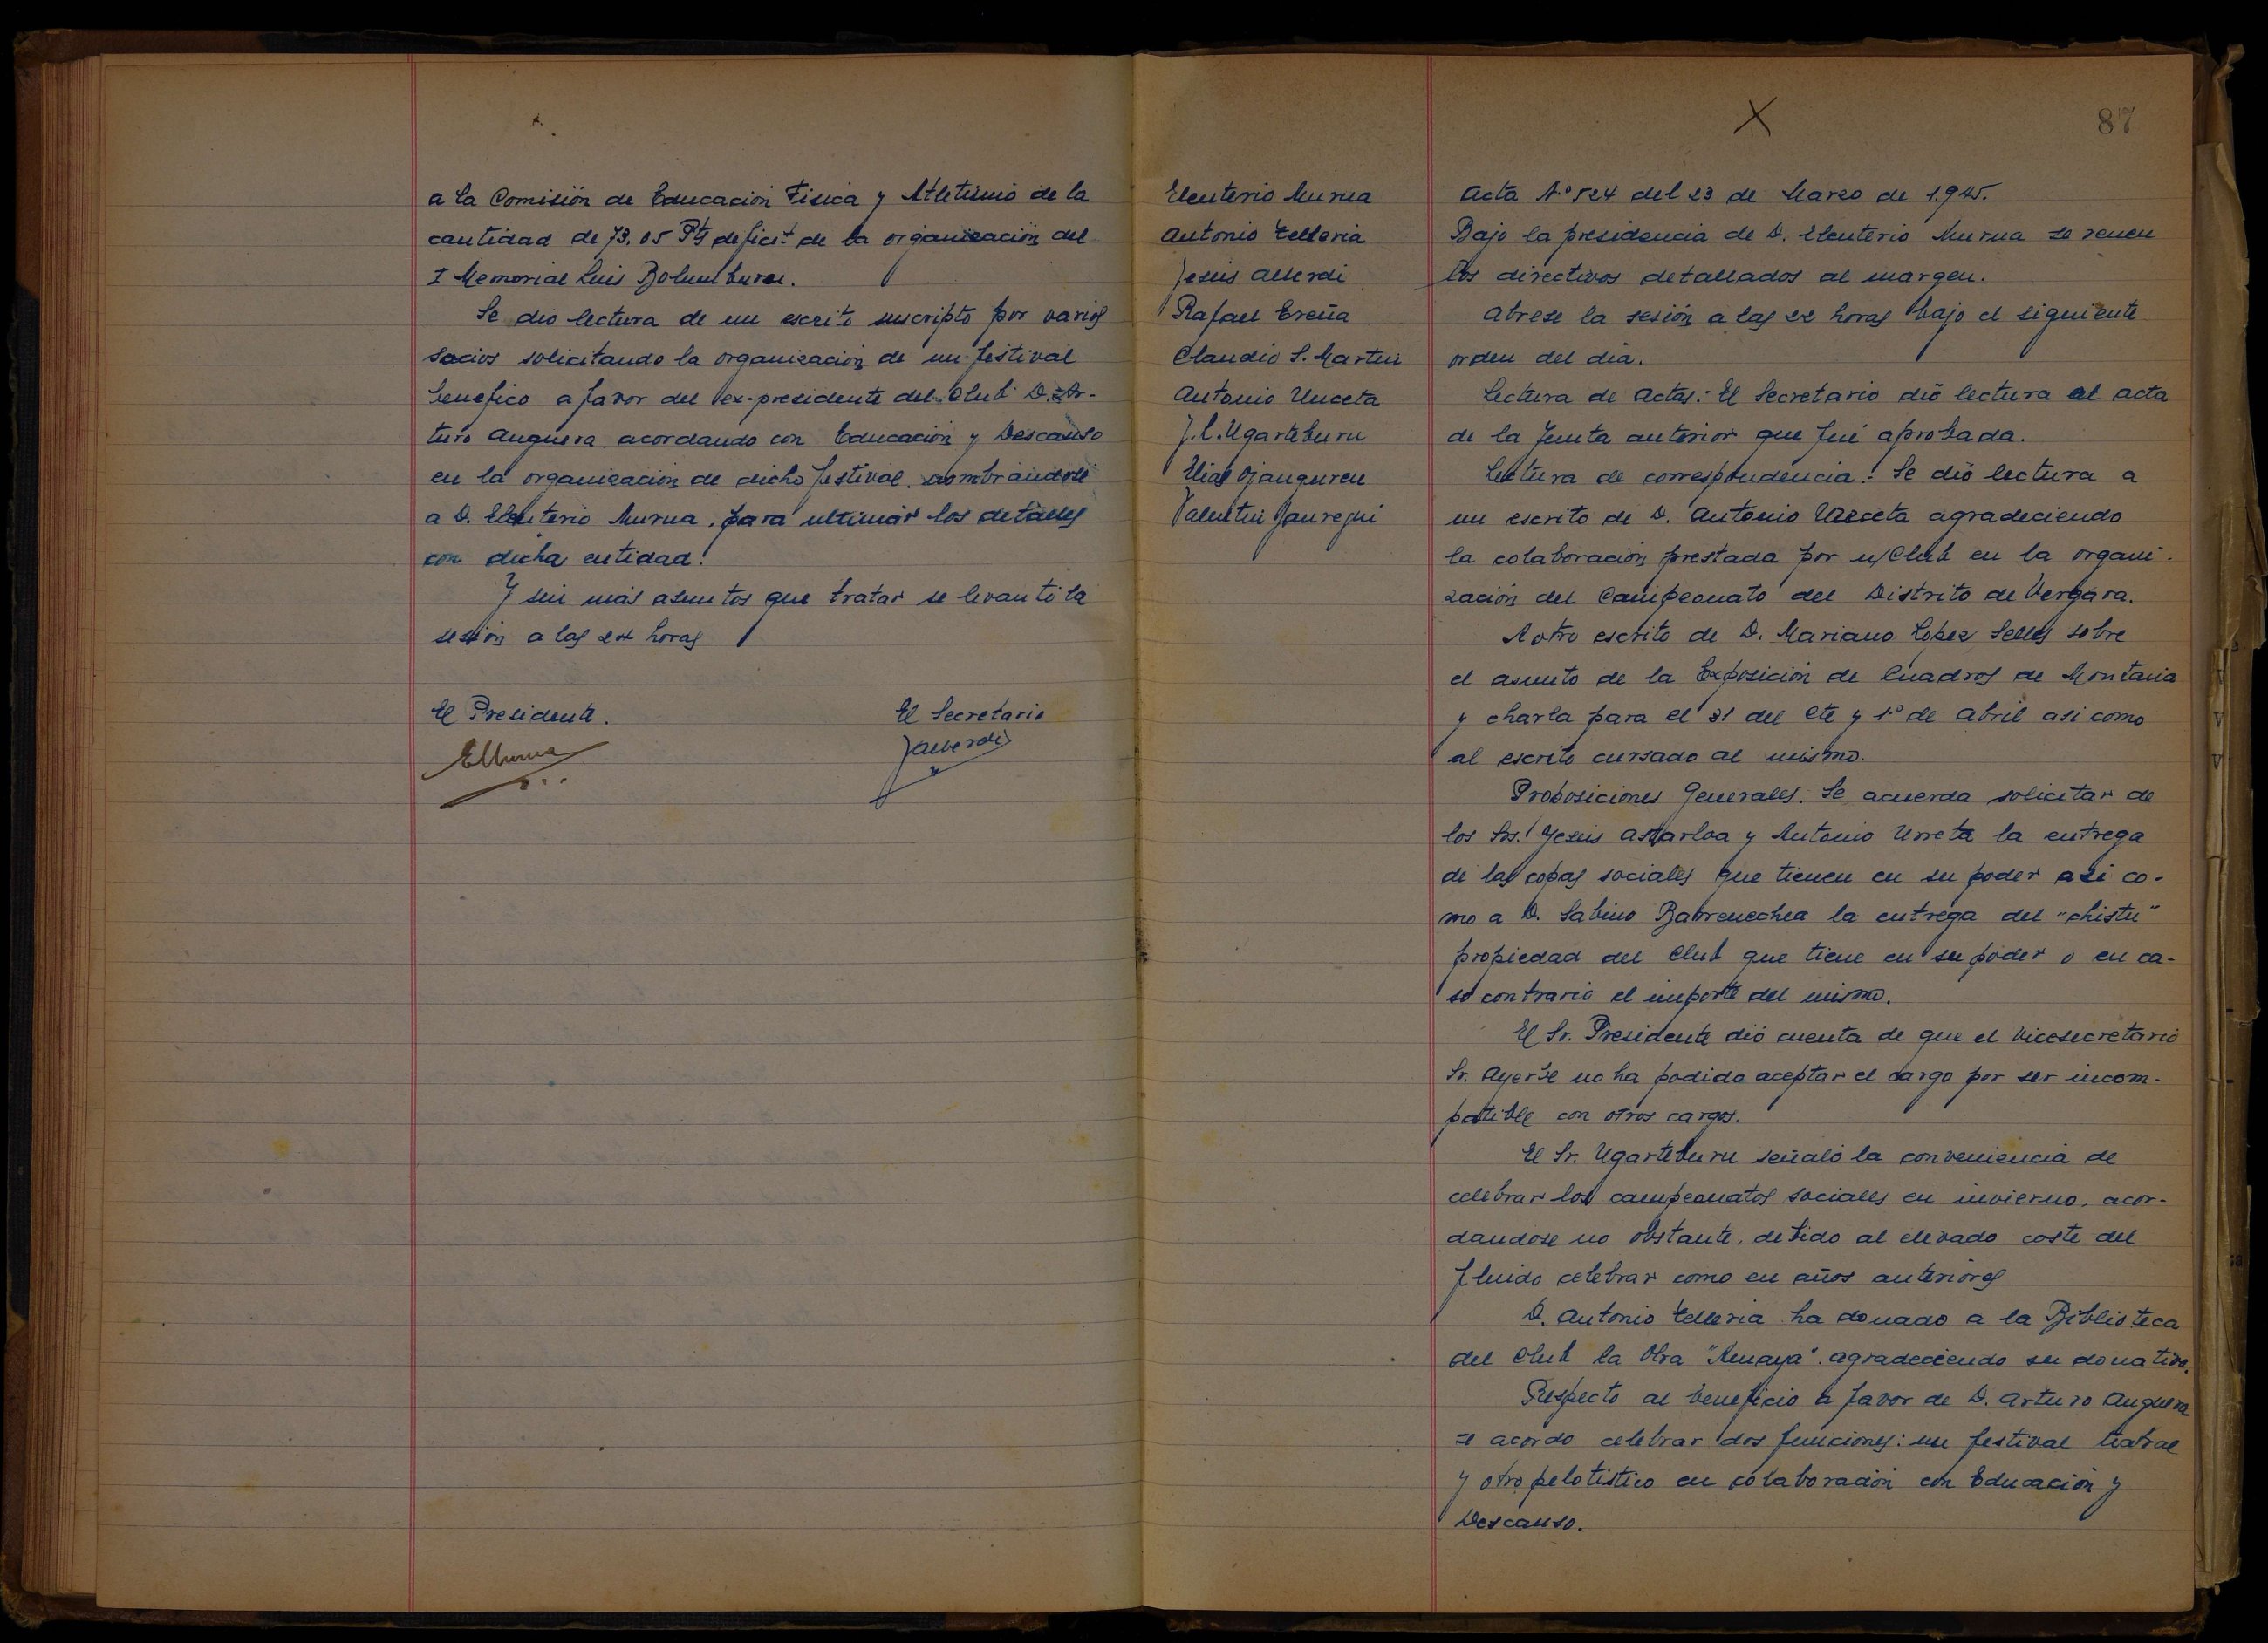 a la Comisión de Educación Fisica y Atletismo de la
cantidad de 73.05 Pts deficit de la organización del
I Memorial Luis Bolumburu.
Se dio lectura de un escrito suscripto por varios
socios solicitando la organización de un festival
benefico a favor del ex-presidente del Club D. Ar-
turo Anguera acordando con Educación y Descanso
en la organización de dicho festival, nombrandose
a D. Eleuterio Murua, para ultimar los detalles
con dicha entidad.
Y sin más asuntos que tratar se levantó la
sesión a las 24 horas
El Presidente.
El Secretario
EMurua
JAlberdi
87
Eleuterio Murua
Antonio Telleria
Jesús Alberdi
Rafael Ereña
Claudio S. Martin
Antonio Unceta
J.L. Ugarteburu
Elias Ojanguren
Valentin Jauregui
Acta Nº 524 del 23 de Marzo de 1.945.
Bajo la presidencia de D. Eleuterio Murua se renen
los directivos detallados al margen.
Abrese la sesión a las 22 horas bajo el siguiente
orden del dia.
Lectura de Actas: El Secretario dió lectura al acta
de la Junta anterior que fué aprobada.
Lectura de correspondencia: Se dió lectura a
un escrito de D. Antonio Unceta agradeciendo
la colaboración prestada por n/Club en la organi-
zación del Campeonato del Distrito de Vergara.
A otro escrito de D. Mariano Lopez Selles sobre
el asunto de la Exposición de Cuadros de Montaña
y charla para el 31 del cte y 1º de Abril asi como
al escrito cursado al mismo.
Proposiciones Generales. Se acuerda solicitar de
los Srs. Jesús Astarloa y Antonio Urreta la entrega
de las copas sociales que tienen en su poder asi co-
mo a D. Sabino Barrenechea la entrega del "chistu"
propiedad del Club que tiene en su poder o en ca-
so contrario el importe del mismo.
El Sr. Presidente dió cuenta de que el Vicesecretario
Sr. Ayerbe no ha podido aceptar el cargo por ser incom-
patible con otros cargos.
El Sr. Ugarteburu señaló la conveniencia de
celebrar los campeonatos sociales en invierno, acor-
dandose no obstante, debido al elevado coste del
fluido celebrar como en años anteriores
D. Antonio Telleria ha donado a la Biblioteca
del Club la Obra "Amaya". agradeciendo su donativo.
Respecto al beneficio a favor de D. Arturo Anguera
se acordo celebrar dos funciones: un festival teatral
y otro pelotistico en colaboración con Educación y
Descanso.